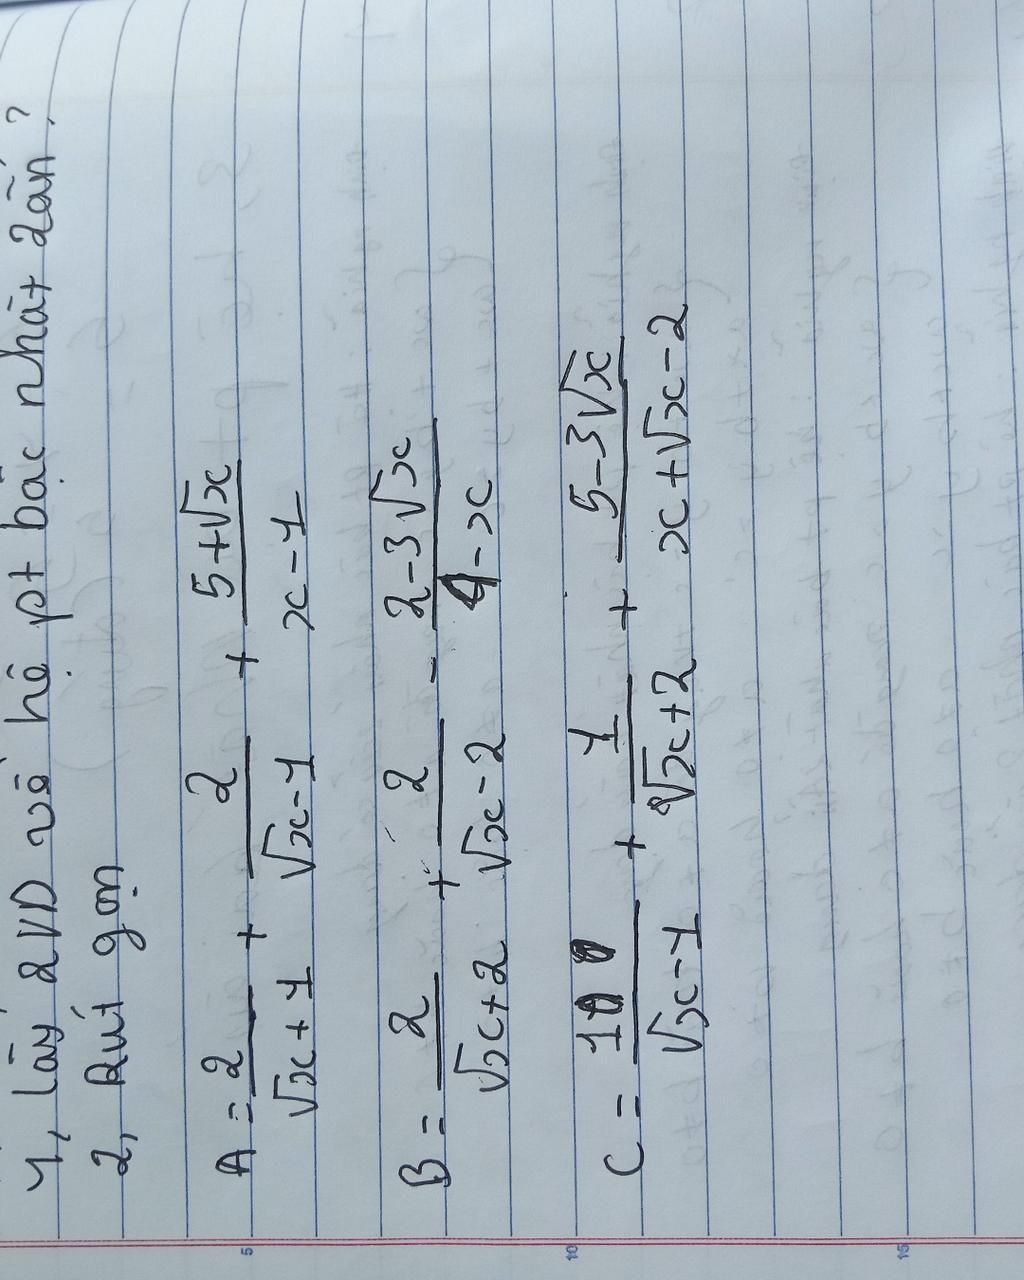 1, lấy 2 VD về hệ pt bậc nhất 2 ẩn?
2, Rút gọn
A = 2/(√x+1) + 2/(√x-1) + (5+√x)/(x-1)
B = 2/(√x+2) + 2/(√x-2) - (2-3√x)/(4-x)
C = 1/(√x-1) + 1/(√x+2) + (5-3√x)/(x+√x-2)
5
10
15